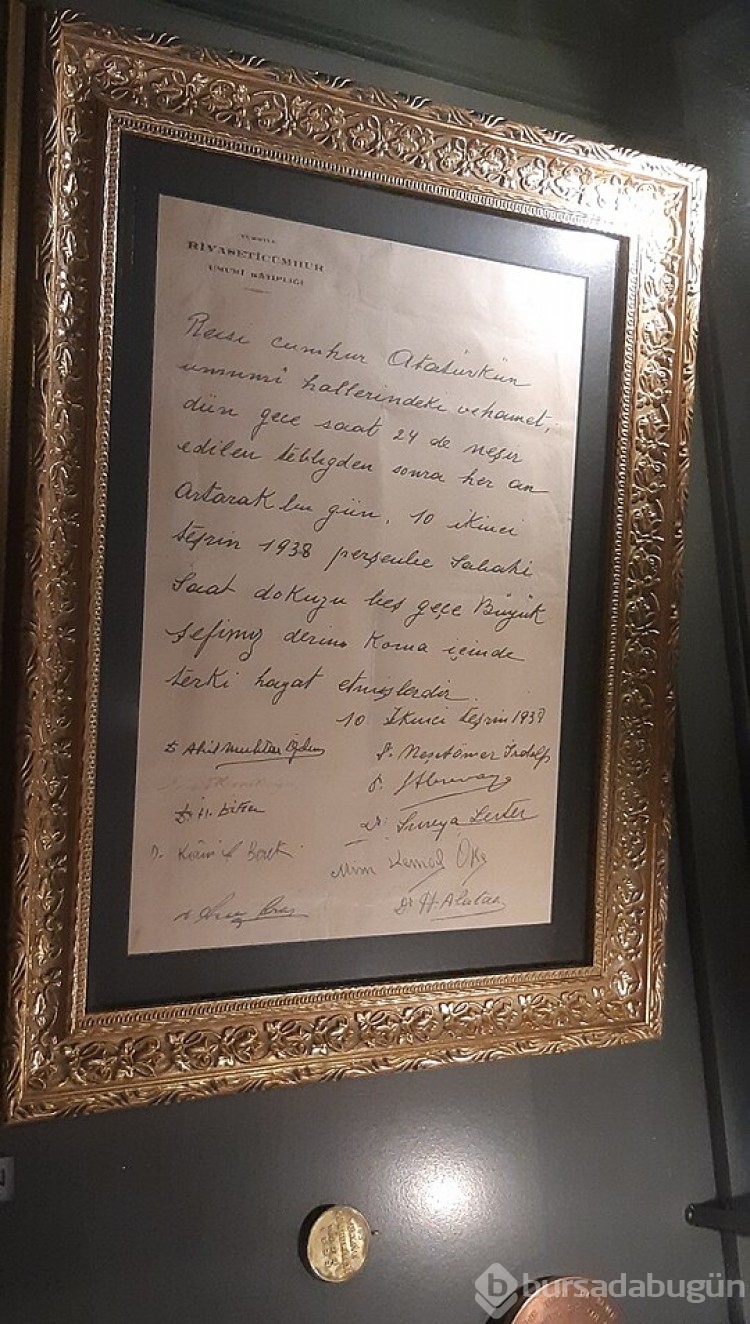 TÜRKİYE
RİYASETİCÜMHUR
UMUMİ KATİPLİĞİ
Reisi cumhur Atatürkün
umumî hallerindeki vehamet,
dün gece saat 24 de neşir
edilen tebliğden sonra her an
artarak bu gün, 10 ikinci
teşrin 1938 perşembe sabahi
saat dokuzu beş geçe Büyük
şefimiz derin koma içinde
terki hayat etmişlerdir.
10 İkinci teşrin 1938
Dr. Akil Muhtar Özden
Dr. Neşet Ömer İrdelp
Dr.
Dr. Süreya Serter
Mim Kemal Öke
Dr. H. Alataş
bursadabugün